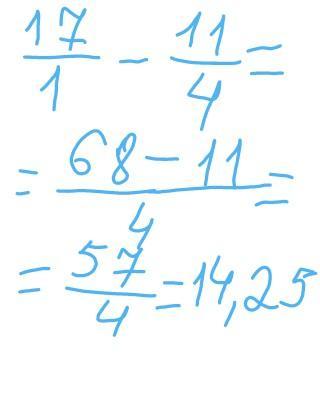 17/1 - 11/4 =
= (68 - 11)/4 =
= 57/4 = 14,25